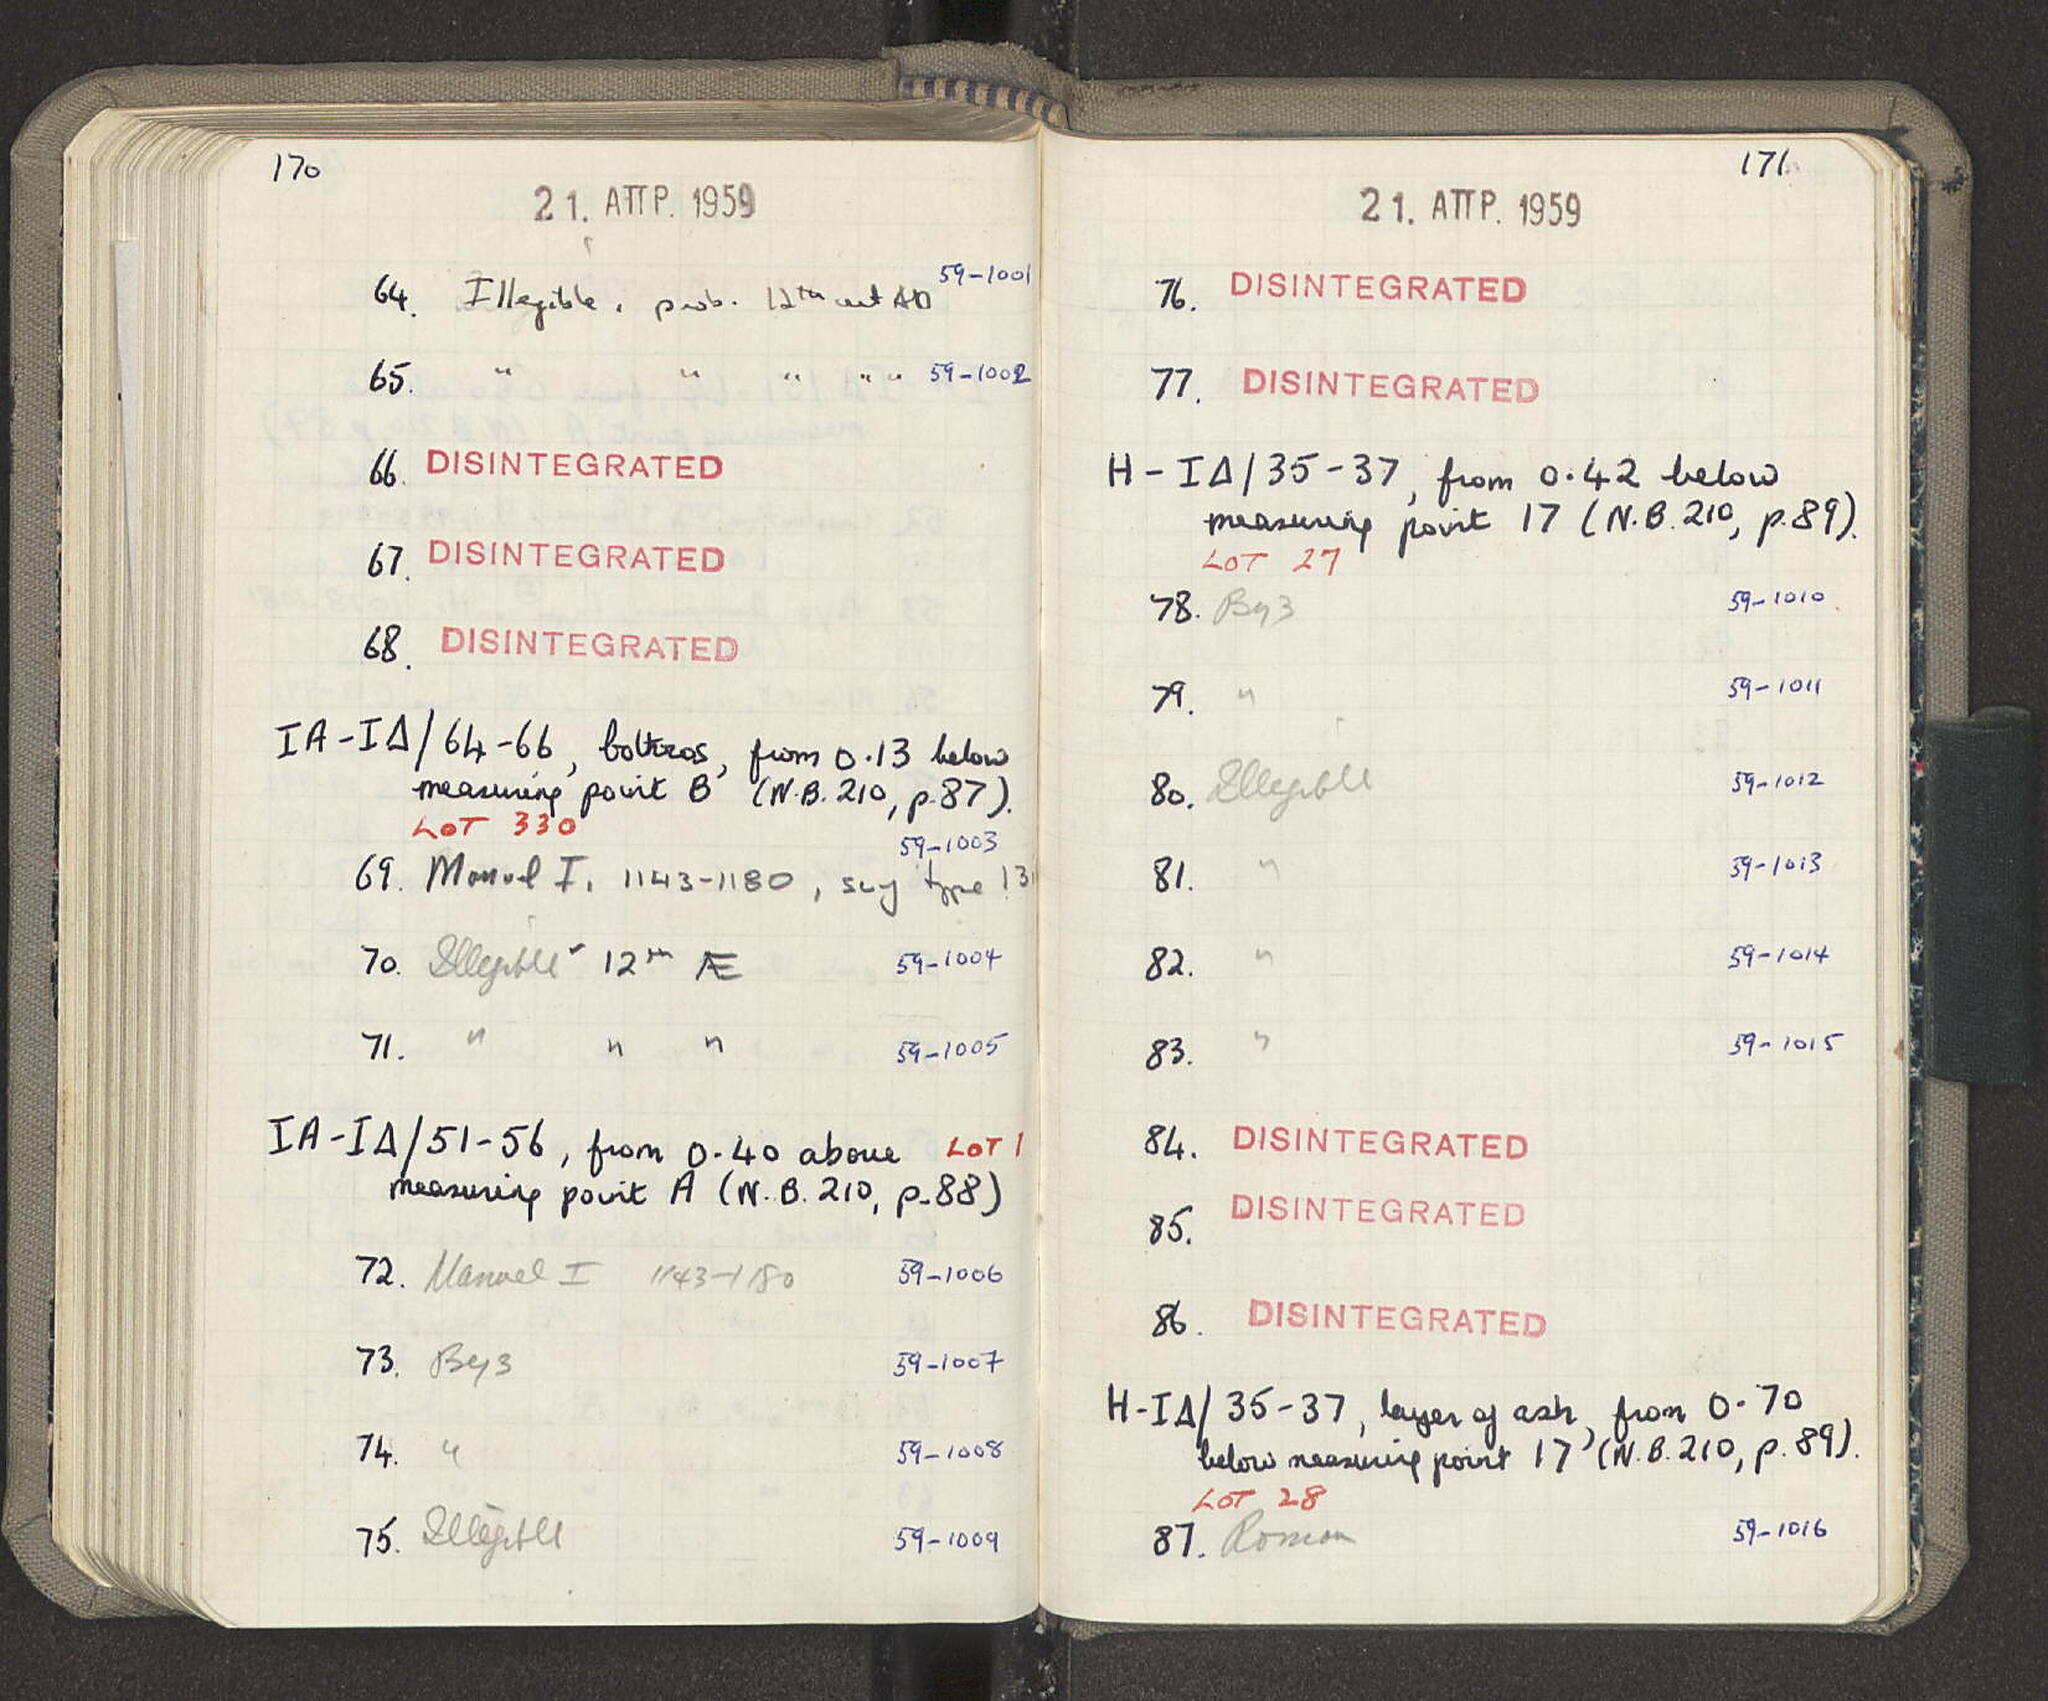 170
21. ΑΠΡ. 1959
59-1001
64. Illegible, prob. 12th cent AD
65. " " " " " 59-1002
66. DISINTEGRATED
67. DISINTEGRATED
68. DISINTEGRATED
ΙΑ-ΙΔ/64-66, bothros, from 0.13 below
measuring point B (N.B. 210, p. 87).
LOT 330
59-1003
69. Manuel I, 1143-1180, type 13
70. Illegible 12th Æ 59-1004
71. " " " 59-1005
ΙΑ-ΙΔ/51-56, from 0.40 above LOT 1
measuring point A (N.B. 210, p. 88)
72. Manuel I 1143-1180 59-1006
73. Byz 59-1007
74. " 59-1008
75. Illegible 59-1009
171
21. ΑΠΡ. 1959
76. DISINTEGRATED
77. DISINTEGRATED
Η-ΙΔ/35-37, from 0.42 below
measuring point 17 (N.B. 210, p. 89).
LOT 27
78. Byz 59-1010
79. " 59-1011
80. Illegible 59-1012
81. " 59-1013
82. " 59-1014
83. " 59-1015
84. DISINTEGRATED
85. DISINTEGRATED
86. DISINTEGRATED
Η-ΙΔ/35-37, layer of ash, from 0.70
below measuring point 17 (N.B. 210, p. 89).
LOT 28
87. Roman 59-1016